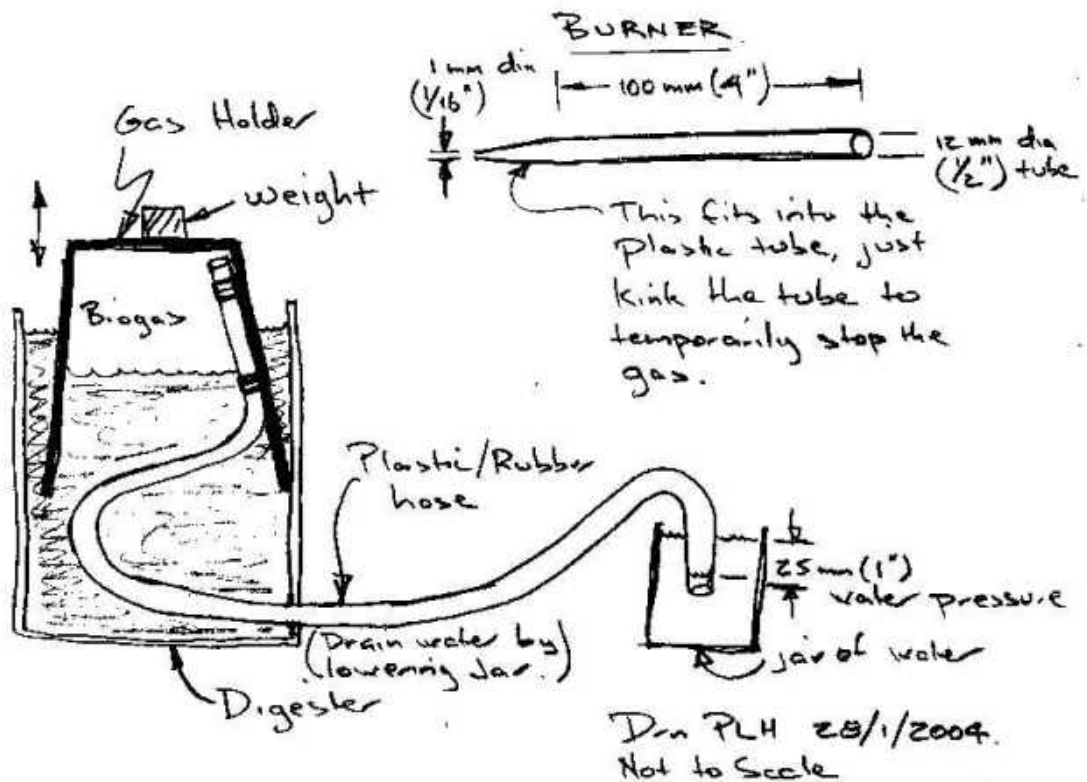 BURNER
1 mm dia
(1/16")
100 mm (4")
12 mm dia
(1/2") tube
This fits into the
plastic tube, just
kink the tube to
temporarily stop the
gas.
Gas Holder
weight
Biogas
Plastic/Rubber
hose
25 mm (1")
water pressure
(Drain water by
lowering Jar.)
jar of water
Digester
Drn PLH 28/1/2004.
Not to Scale